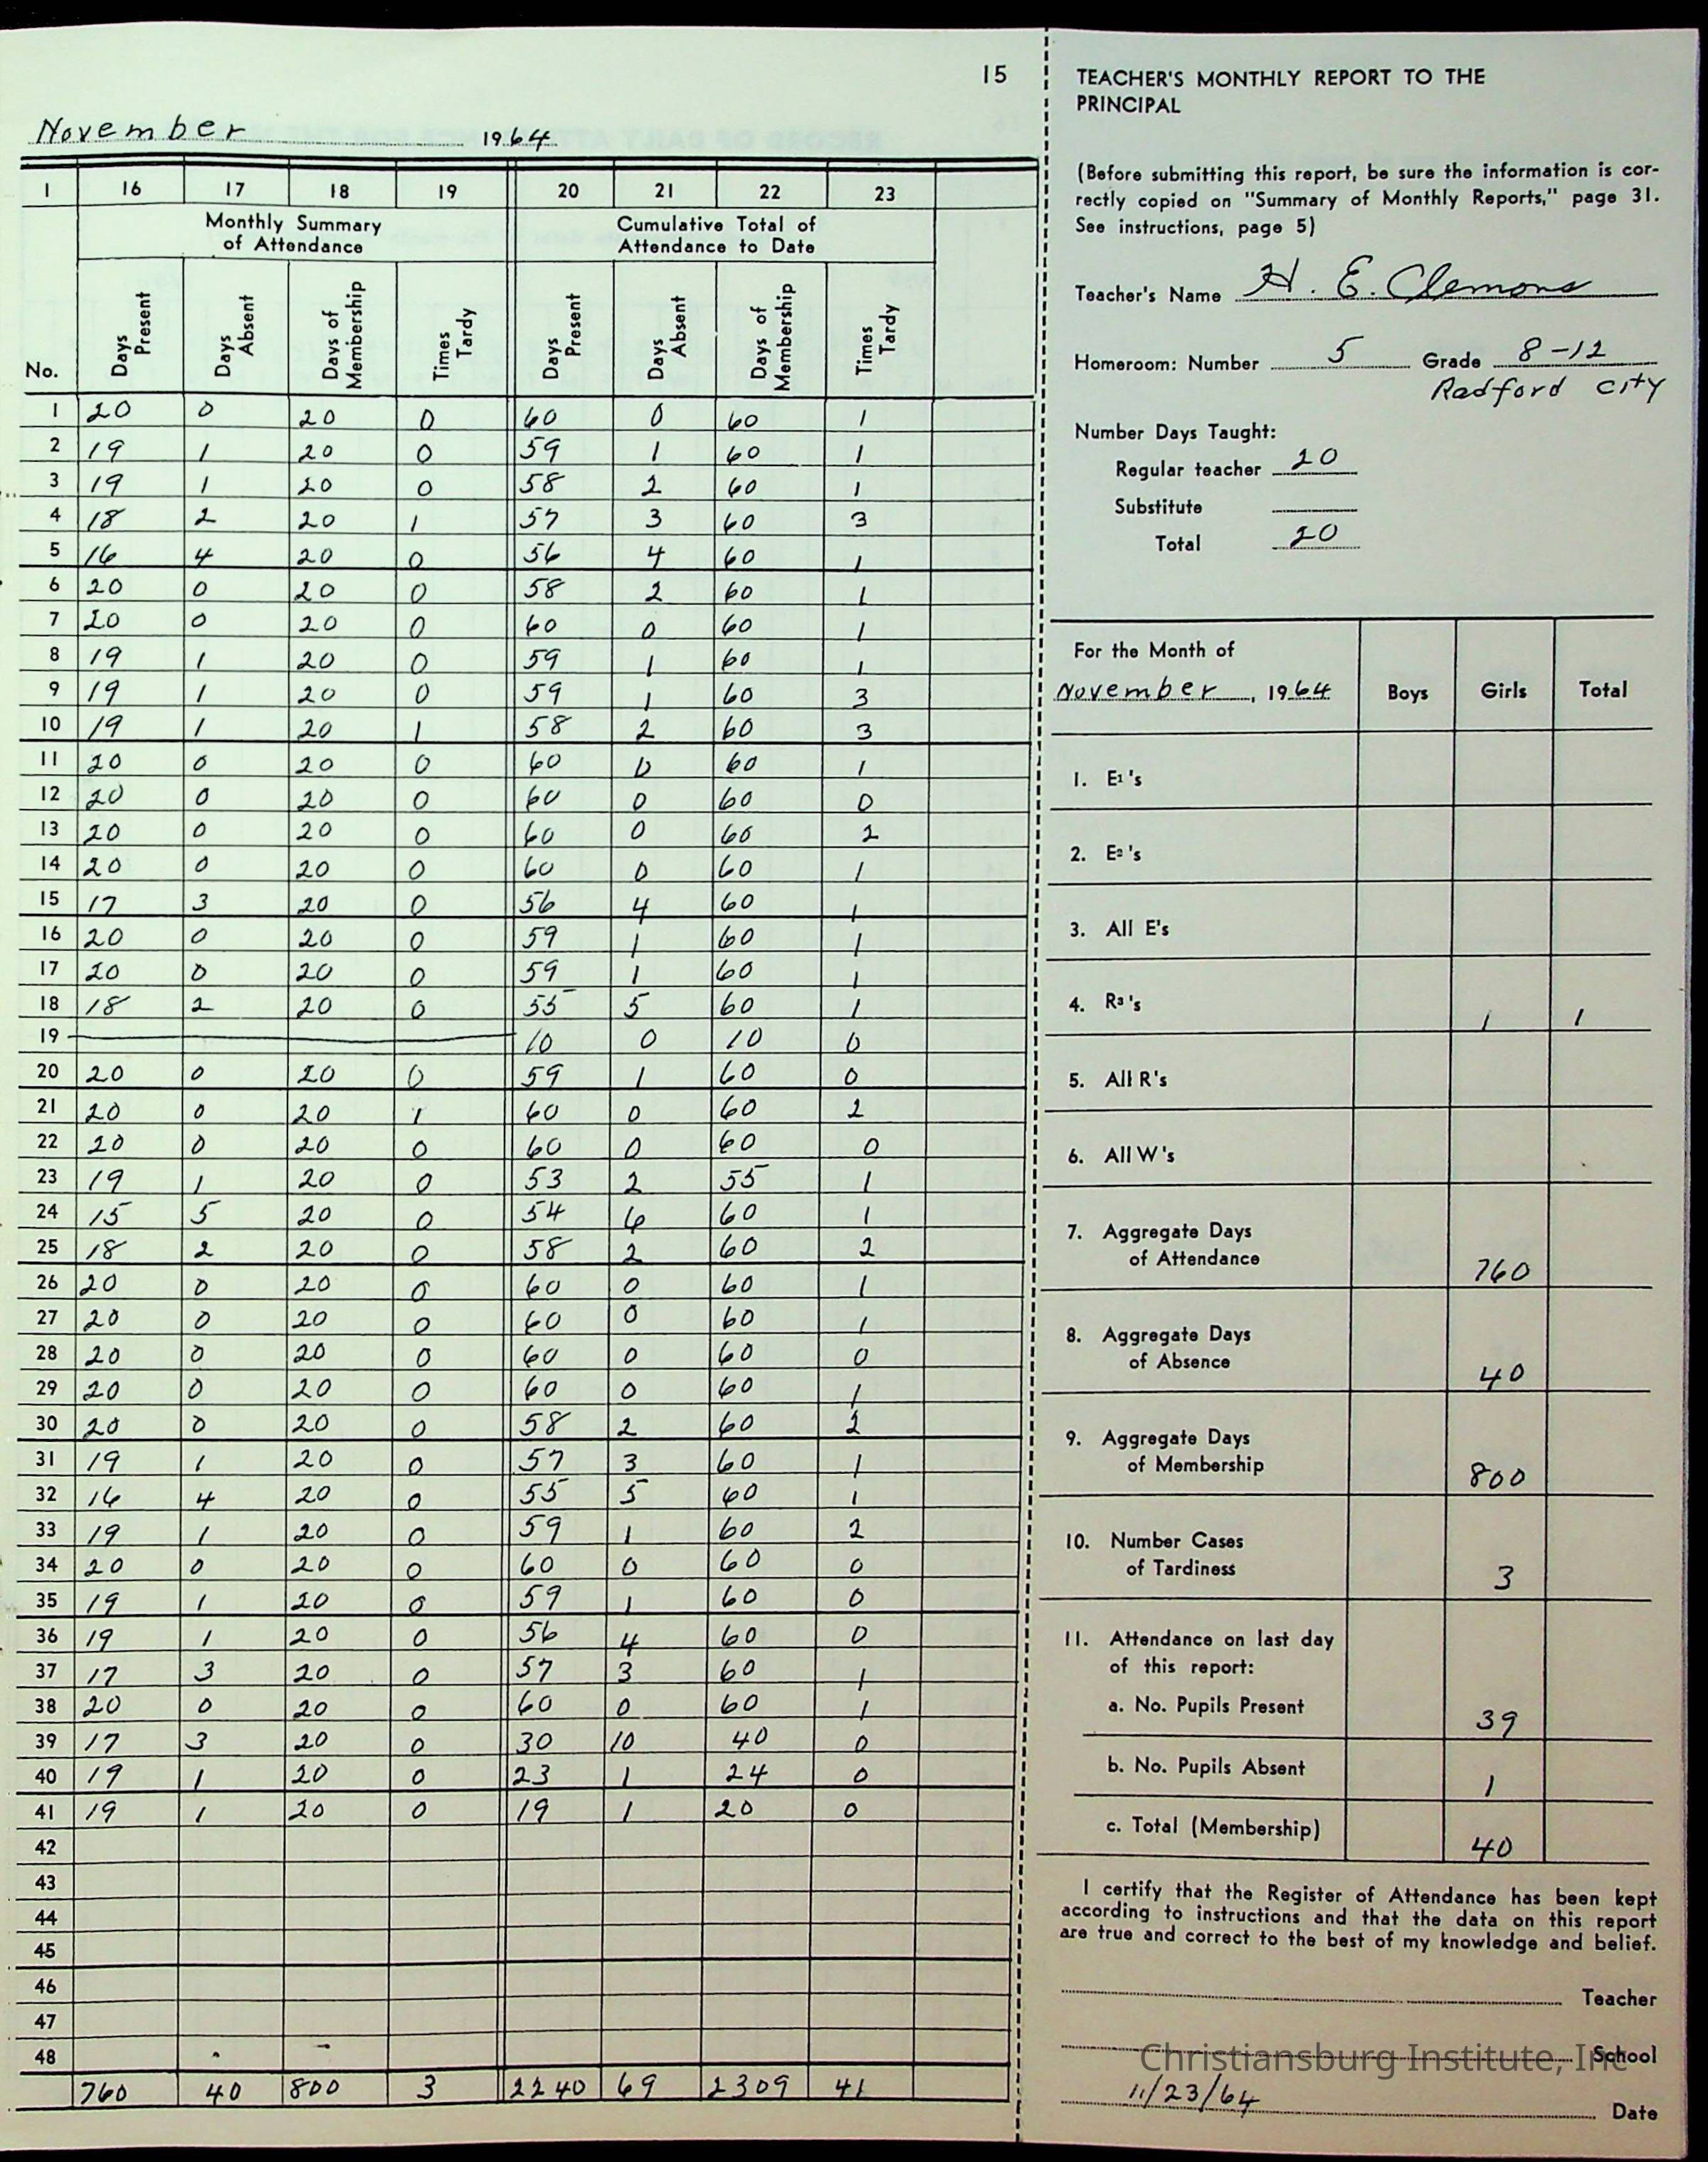 15
November 1964
1 16 17 18 19 20 21 22 23
Monthly Summary of Attendance Cumulative Total of Attendance to Date
No. Days Present Days Absent Days of Membership Times Tardy Days Present Days Absent Days of Membership Times Tardy
1 20 0 20 0 60 0 60 1
2 19 1 20 0 59 1 60 1
3 19 1 20 0 58 2 60 1
4 18 2 20 1 57 3 60 3
5 16 4 20 0 56 4 60 1
6 20 0 20 0 58 2 60 1
7 20 0 20 0 60 0 60 1
8 19 1 20 0 59 1 60 1
9 19 1 20 0 59 1 60 3
10 19 1 20 1 58 2 60 3
11 20 0 20 0 60 0 60 1
12 20 0 20 0 60 0 60 0
13 20 0 20 0 60 0 60 2
14 20 0 20 0 60 0 60 1
15 17 3 20 0 56 4 60 1
16 20 0 20 0 59 1 60 1
17 20 0 20 0 59 1 60 1
18 18 2 20 0 55 5 60 1
19 10 0 10 0
20 20 0 20 0 59 1 60 0
21 20 0 20 1 60 0 60 2
22 20 0 20 0 60 0 60 0
23 19 1 20 0 53 2 55 1
24 15 5 20 0 54 6 60 1
25 18 2 20 0 58 2 60 2
26 20 0 20 0 60 0 60 1
27 20 0 20 0 60 0 60 1
28 20 0 20 0 60 0 60 0
29 20 0 20 0 60 0 60 1
30 20 0 20 0 58 2 60 2
31 19 1 20 0 57 3 60 1
32 16 4 20 0 55 5 60 1
33 19 1 20 0 59 1 60 2
34 20 0 20 0 60 0 60 0
35 19 1 20 0 59 1 60 0
36 19 1 20 0 56 4 60 0
37 17 3 20 0 57 3 60 1
38 20 0 20 0 60 0 60 1
39 17 3 20 0 30 10 40 0
40 19 1 20 0 23 1 24 0
41 19 1 20 0 19 1 20 0
42
43
44
45
46
47
48
760 40 800 3 2240 69 2309 41
TEACHER'S MONTHLY REPORT TO THE
PRINCIPAL
(Before submitting this report, be sure the information is cor-
rectly copied on "Summary of Monthly Reports," page 31.
See instructions, page 5)
Teacher's Name H. E. Clemons
Homeroom: Number 5 Grade 8-12
Radford City
Number Days Taught:
Regular teacher 20
Substitute
Total 20
For the Month of
November, 1964 Boys Girls Total
1. E1's
2. E2's
3. All E's
4. R3's 1 1
5. All R's
6. All W's
7. Aggregate Days
of Attendance 760
8. Aggregate Days
of Absence 40
9. Aggregate Days
of Membership 800
10. Number Cases
of Tardiness 3
11. Attendance on last day
of this report:
a. No. Pupils Present 39
b. No. Pupils Absent 1
c. Total (Membership) 40
I certify that the Register of Attendance has been kept
according to instructions and that the data on this report
are true and correct to the best of my knowledge and belief.
Teacher
School
Christiansburg Institute, Inc
11/23/64 Date